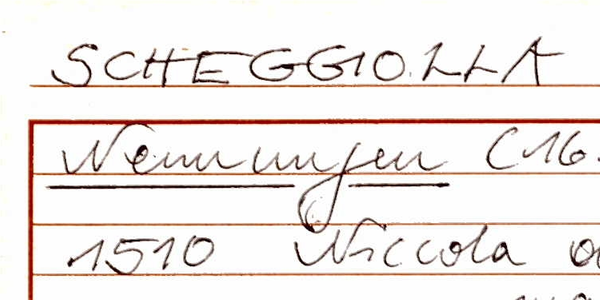 SCHEGGIOLLA
Nennungen (16.
1510 Niccola